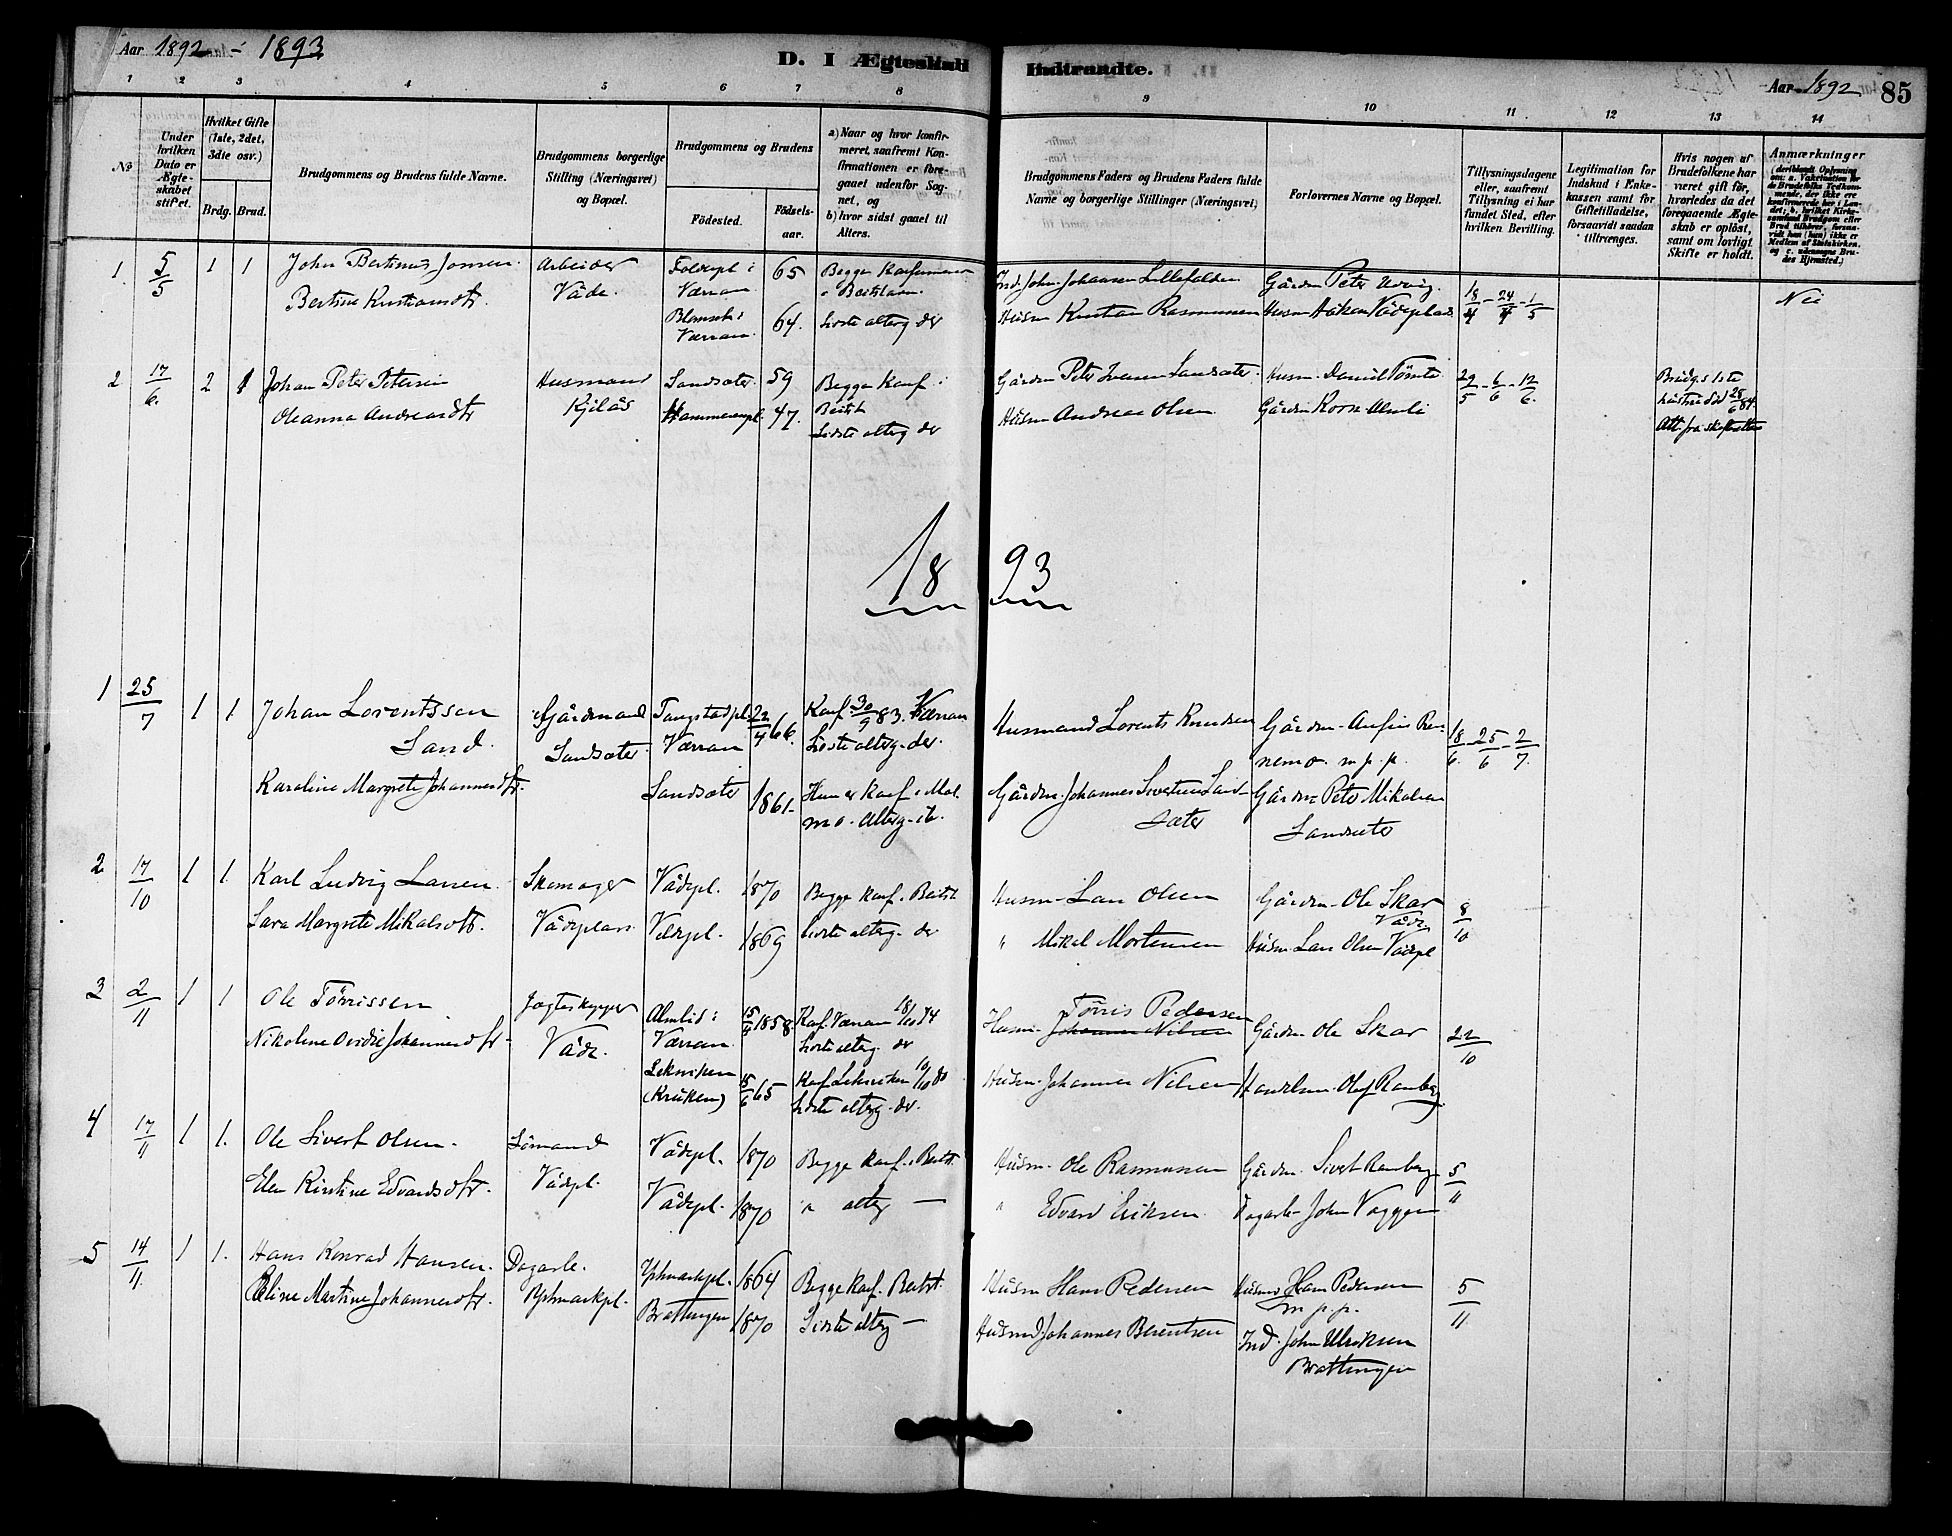 Aar 1892 - 1893
D. I Ægteskab
Indtraadte.
Aar 1892
85
1 2 3 4 5 6 7 8 9 10 11 12 13 14
No
Under hvilken Dato er Ægteskabet stiftet.
Hvilket Gifte (1ste, 2det, 3die osv.)
Brdg. Brud.
Brudgommens og Brudens fulde Navne.
Brudgommens borgerlige Stilling (Næringsvei) og Bopæl.
Brudgommens og Brudens
Födested.
Födsels-aar.
a) Naar og hvor konfirmeret, saafremt Konfirmationen er foregaaet udenfor Sognet, og
b) hvor sidst gaaet til Alters.
Brudgommens Faders og Brudens Faders fulde Navne og borgerlige Stillinger (Næringsvei)
Forlovernes Navne og Bopæl.
Tillysningsdagene eller, saafremt Tillysning ei har fundet Sted, efter hvilken Bevilling.
Legitimation for Indskud i Enkekassen samt for Giftetilladelse, forsaavidt saadan tiltrænges.
Hvis nogen af Brudefolkene har været gift för, hvorledes da det foregaaende Ægteskab er oplöst, samt om lovligt Skifte er holdt.
Anmærkninger
1 5/5 1 1 John Bertinus Jonsen Arbeider 65 Begge Konf
Bertine Kristiansdtr. Våde. Værran 64. Sidste alterg. der
Ind. John Johansen Lillefolden Gårdm Peter Utvig 18/4 - 24/4 - 1/5 Nei
Husm Kristian Rasmussen Husm Håken Vådeplads
2 17/6. 2 1 Johan Peter Petersen Husmand Sandsæter 59 Begge Konf i
Oleanna Andreasdtr Kjilås 47. Beitst. Sidste alterg der
Gårdm Peter Iversen Sandsæter. Husm. Daniel Tömte 29/5 - 6/6 - 12/6. Brudg. 1ste
Husm Andreas Olsen. Gårdm Almli hustru död 28/6 84.
Att. fra skifteretten
1893
1 25/7 1 1. Johan Lorentssen Gårdmand Tangstadpl 22/4 66. Konf 30/9 83. Værran
Sand. Sandsæter. Værran Sidste alterg. der.
Karoline Margrete Johannesdtr. Sandsæter 1861- Hun er Konf. i Malmo. alterg. ib.
Husmand Lorents Knudsen Gårdm. Anfin Rennemo. m.p.p. 18/6. - 25/6 - 2/7.
Gårdm. Johannes Sivertsen Sandsæter Gårdm Peter Mikalsen Sandsæter
2 17/10 1 1. Karl Ludvig Larsen. Skomager Vådepl. 1870 Begge Konf. Beitst
Sara Margrete Mikalsdtr. Vådeplads Vådepl. 1869 Sidste alterg. der
Husm. Lars Olsen Gårdm. Ole Skar Våde 8/10
" Mikal Mortensen Husm Lars Olsen Vådepl
3 2/11 1 1 Ole Törrissen Jagteskipper Almlid i Værran 15/4 1858. Konf. Værran 18/10 74
Nikoline Ovidie Johannesdtr. Våde. Leksviken (Kruken) 15/6 65 Sidste alterg. der
Konf. Leksviken 10/10 80
Sidste alterg. der.
Husm. Johannes Nilsen Törris Pedersen Gårdm Ole Skar 22/10
Husm. Johannes Nilsen Handelsm. Olaf Ramberg
4 17/11 1 1. Ole Sivert Olsen. Sömand Vådepl. 1870 Begge konf. i Beitst.
Elen Kirstine Edvardsdtr. Vådepl. Vådepl. 1870 " alterg —
Husm. Ole Rasmussen Gårdm. Sivert Ramberg 5/11
" Edvard Eriksen. Dagarb. John Vaggen
5 14/11. 1 1. Hans Konrad Hansen. Dagarb. 1864 Begge Konf. Beitst.
Eline Martine Johannesdtr. Brattingen 1870 Sidste alterg —
Husm Hans Pedersen Husmd Hans Pedersen m.p.p. 5/11
Husmd Johannes Berentsen Ind. John Ulriksen Brattingen